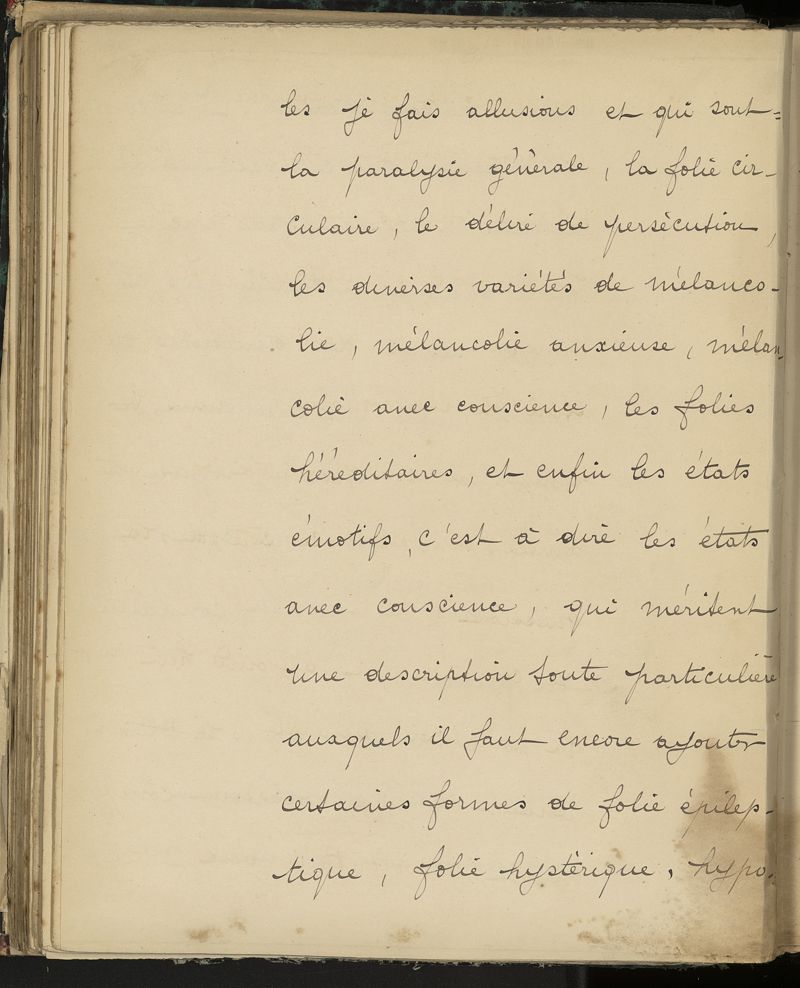 les je fais allusions et qui sont=
la paralysie générale, la folie cir-
culaire, le délire de persécution,
les diverses variétés de mélanco-
lie, mélancolie anxieuse, mélan-
colie avec conscience, les folies
héréditaires, et enfin les états
émotifs, c'est à dire les états
avec conscience, qui méritent
une description toute particulière
auxquels il faut encore ajouter
certaines formes de folie épilep-
tique, folie hystérique, hypo-